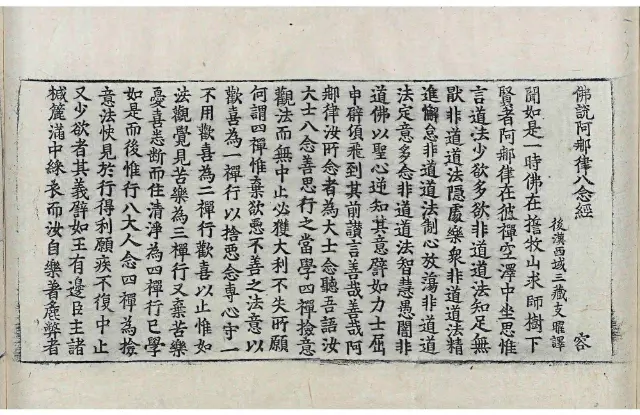 佛說阿那律八念經
容
後漢西域三藏支曜譯
聞如是一時佛在擔牧山求師樹下
賢者阿那律在彼禪空澤中坐思惟
言道法少欲多欲非道道法知足無
猒非道道法隱處樂衆非道道法精
進懈怠非道道法制心放蕩非道道
法定意多念非道道法智慧愚闇非
道佛以聖心逆知其意譬如力士屈
申臂頃飛到其前讚言善哉善哉阿
那律汝所念者為大士念聽吾語汝
大士八念善思行之當學四禪撿意
觀法而無中止必獲大利不失所願
何謂四禪惟棄欲惡不善之法意以
歡喜為一禪行以捨惡念專心守一
不用歡喜為二禪行歡喜以止惟如
法觀覺見苦樂為三禪行又棄苦樂
憂喜悉斷而住清淨為四禪行已學
如是而後惟行八大人念四禪為撿
意法快見於行得利願疾不復中止
又少欲者其義譬如王有邊臣主諸
椷簏滿中綵衣而汝自樂著麁弊者